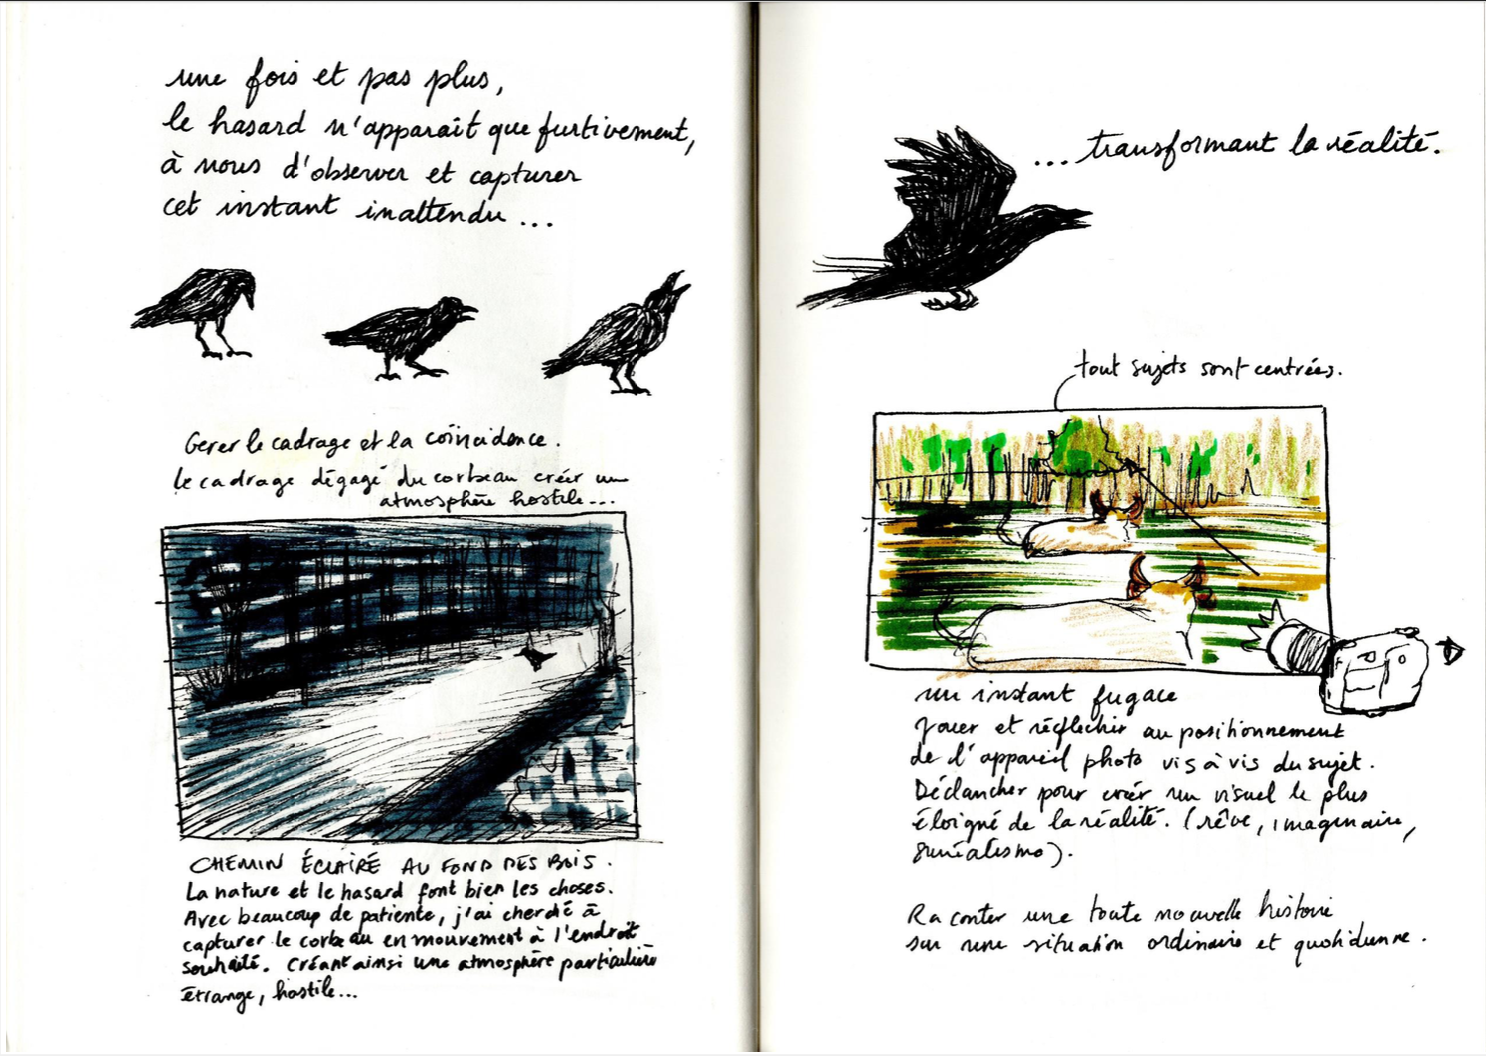 une fois et pas plus,
le hasard n'apparaît que furtivement,
à nous d'observer et capturer
cet instant inattendu...
Gerer le cadrage et la coïncidence.
le cadrage dégagé du corbeau créer une
atmosphère hostile...
CHEMIN ÉCLAIRÉ AU FOND DES BOIS.
La nature et le hasard font bien les choses.
Avec beaucoup de patiente, j'ai cherché à
capturer le corbeau en mouvement à l'endroit
souhaité. Créant ainsi une atmosphère particulière
étrange, hostile...
... transformant la réalité.
tout sujets sont centrées.
un instant fugace
Jouer et réflechir au positionnement
de l'appareil photo vis à vis du sujet.
Déclancher pour créer un visuel le plus
éloigné de la réalité. (rêve, imaginaire,
surréalisme).
Raconter une toute nouvelle histoire
sur une situation ordinaire et quotidienne.